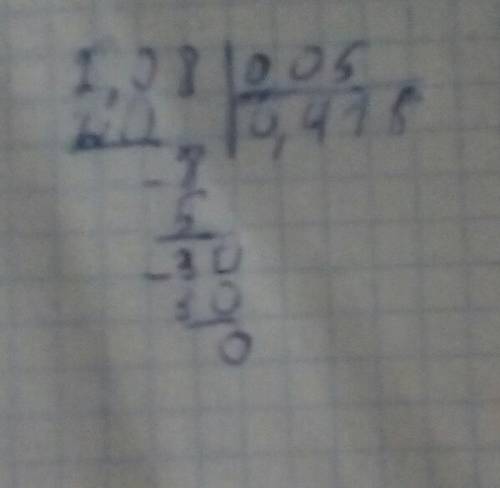 2,08 | 0 05
20 | 0,41 6
- 8
5
- 30
30
0